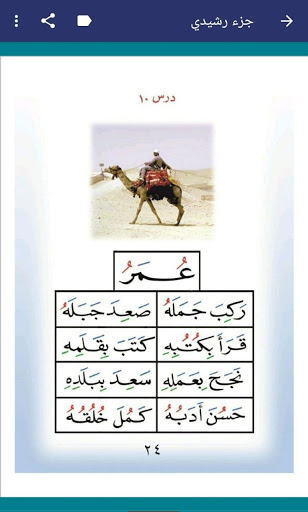 جزء رشيدي
درس ١٠
عُمَرُ
رَكِبَ جَمَلَهُ صَعِدَ جَبَلَهُ
قَرَأَ بِكُتُبِهِ كَتَبَ بِقَلَمِهِ
نَجَحَ بِعَمَلِهِ سَعِدَ بِبَلَدِهِ
حَسُنَ أَدَبُهُ كَمُلَ خُلُقُهُ
٢٤